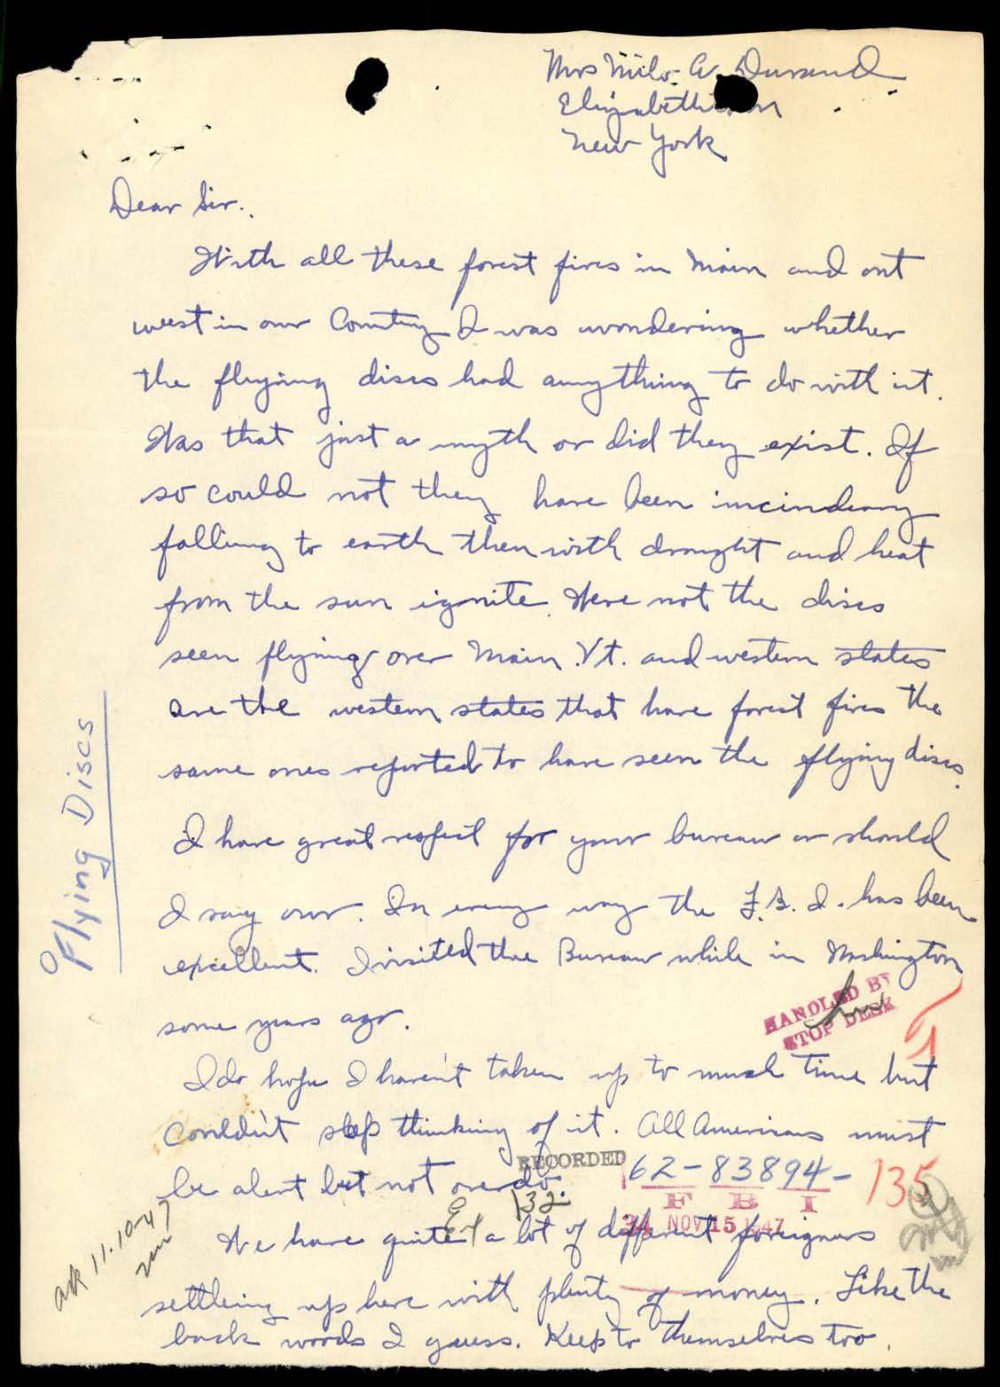 Mrs Milo A. Durand
Elizabethtown
New York
Dear Sir.
With all these forest fires in Main and out
west in our Country I was wondering whether
the flying discs had anything to do with it.
Was that just a myth or did they exist. If
so could not they have been incindeary
falling to earth then with drought and heat
from the sun ignite. Were not the discs
seen flying over Main. Vt. and western states
are the western states that have forest fires the
same ones reported to have seen the flying discs.
I have great respect for your bureau or should
I say our. In every way the F.B.I. has been
excellent. I visited the Bureau while in Washington
some years ago.
I do hope I haven't taken up to much time but
couldn't stop thinking of it. All Americans must
be alert but not overdo.
We have quite a lot of different foreigners
settleing up here with plenty of money. Like the
back words I guess. Keep to themselves too.
Flying Discs
HANDLED BY
STOP DESK
RECORDED
62-83894-135
F B I
34 NOV 15 1947
132
ack 11-10-47